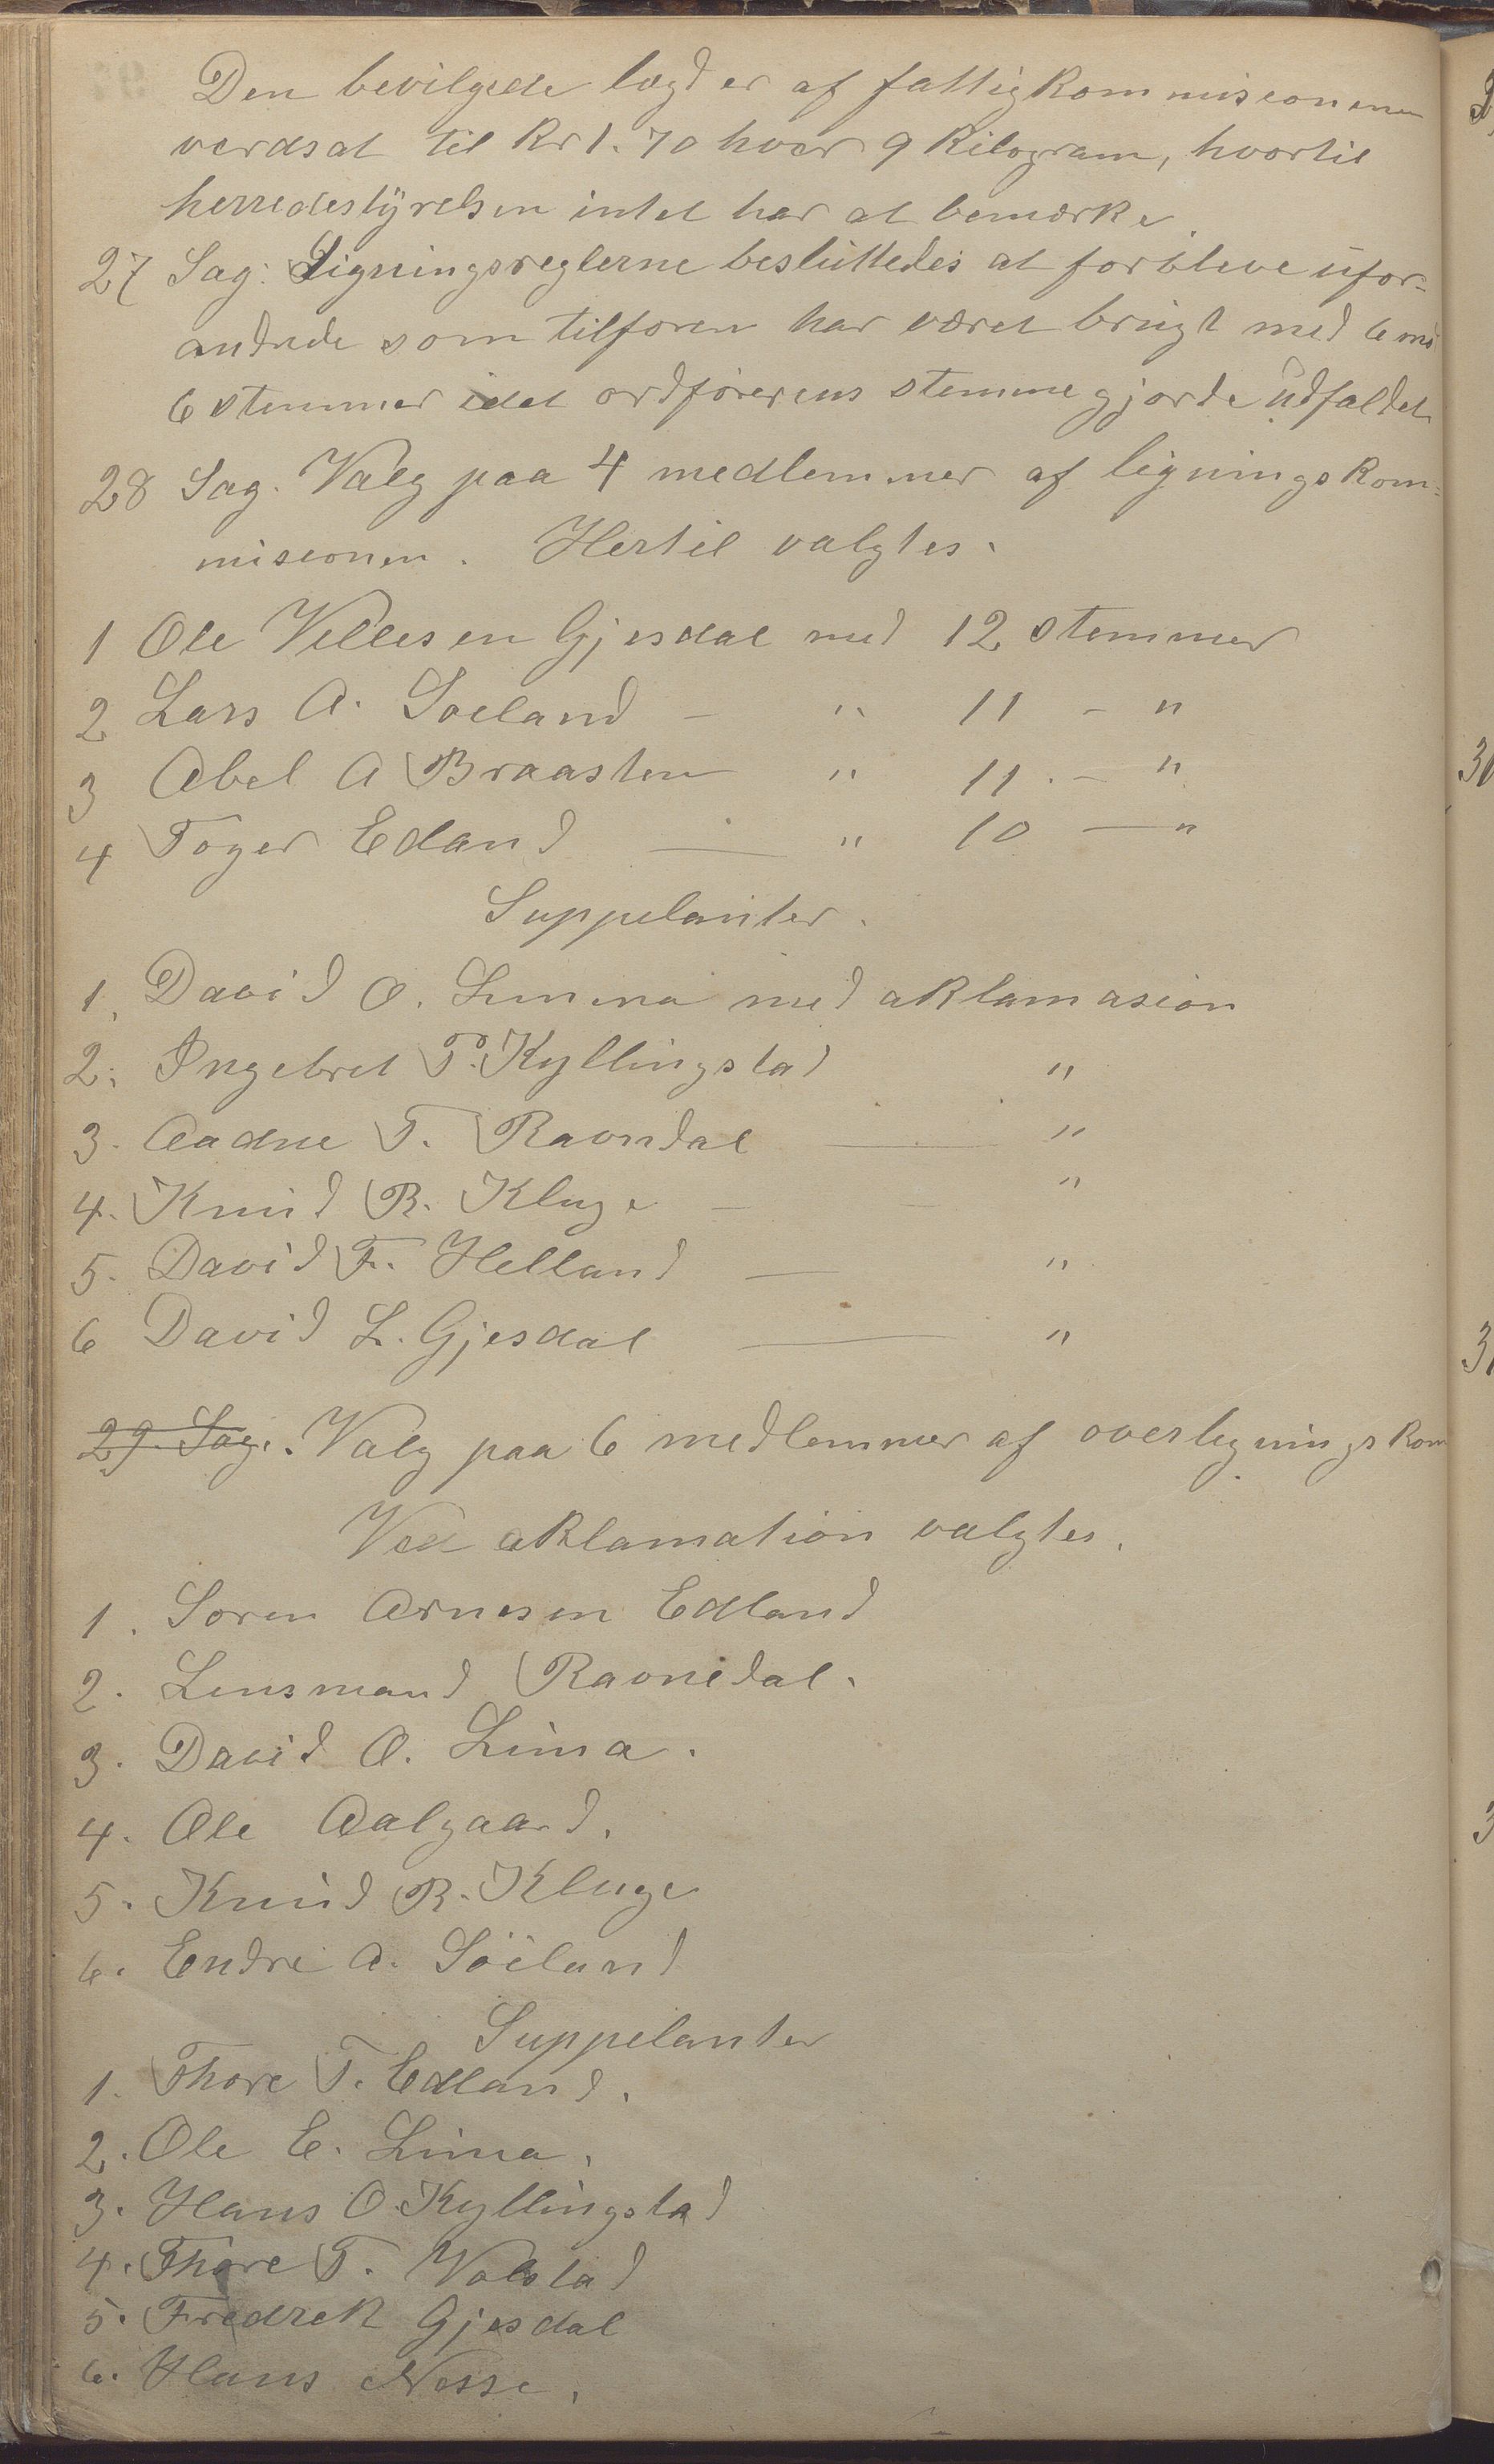 Den bevilgede lægd er af fattigkommisionenen
verdsat til Kr 1.70 hver 9 Kilogram, hvortil
herredestyrelsen intet har at bemærke.
27 Sag: Ligningsreglerne besluttedes at forbleve ufor-
andrede som tilforen har været brugt med 6 mod
6 stemmer idet ordførerens stemme gjorde udfaldet
28 Sag. Valg paa 4 medlemmer af ligningskom-
misionen. Hertil valgtes.
1 Ole Villesen Gjesdal med 12 stemmer
2 Lars A. Soeland - " 11 - "
3 Abel A Braasten " 11 - "
4 Toger Edland — " 10 — "
Suppelanter.
1. David O. Limma med aklamasion
2. Ingebret T. Kyllingstad "
3. Aadne T. Ravndal — "
4. Knud R. Kluge - "
5. David F. Helland — "
6 David L. Gjesdal — "
29 Sag. Valg paa 6 medlemmer af overligningskom
Ved aklamation valgtes.
1. Soren Arnesen Edland
2. Lensmand Ravnedal.
3. David O. Lima.
4. Ole Aalgaard.
5. Knud R. Kluge
6. Endre A. Söiland
Suppelanter
1. Thore T. Edland.
2. Ole E. Lima.
3. Hans O. Kyllingstad
4. Thore T. Valstad
5. Fredrek Gjesdal
6. Hans Nesse.